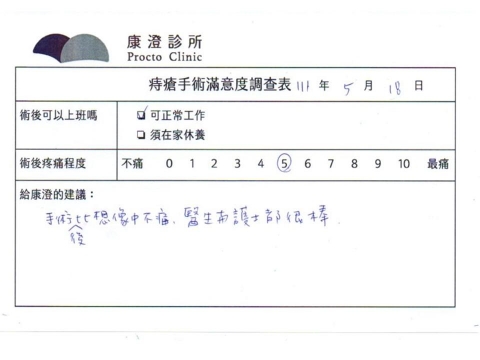 康澄診所
Procto Clinic
痔瘡手術滿意度調查表 111 年 5 月 18 日
術後可以上班嗎
可正常工作
須在家休養
術後疼痛程度 不痛 0 1 2 3 4 5 6 7 8 9 10 最痛
給康澄的建議：
手術後比想像中不痛，醫生和護士都很棒.